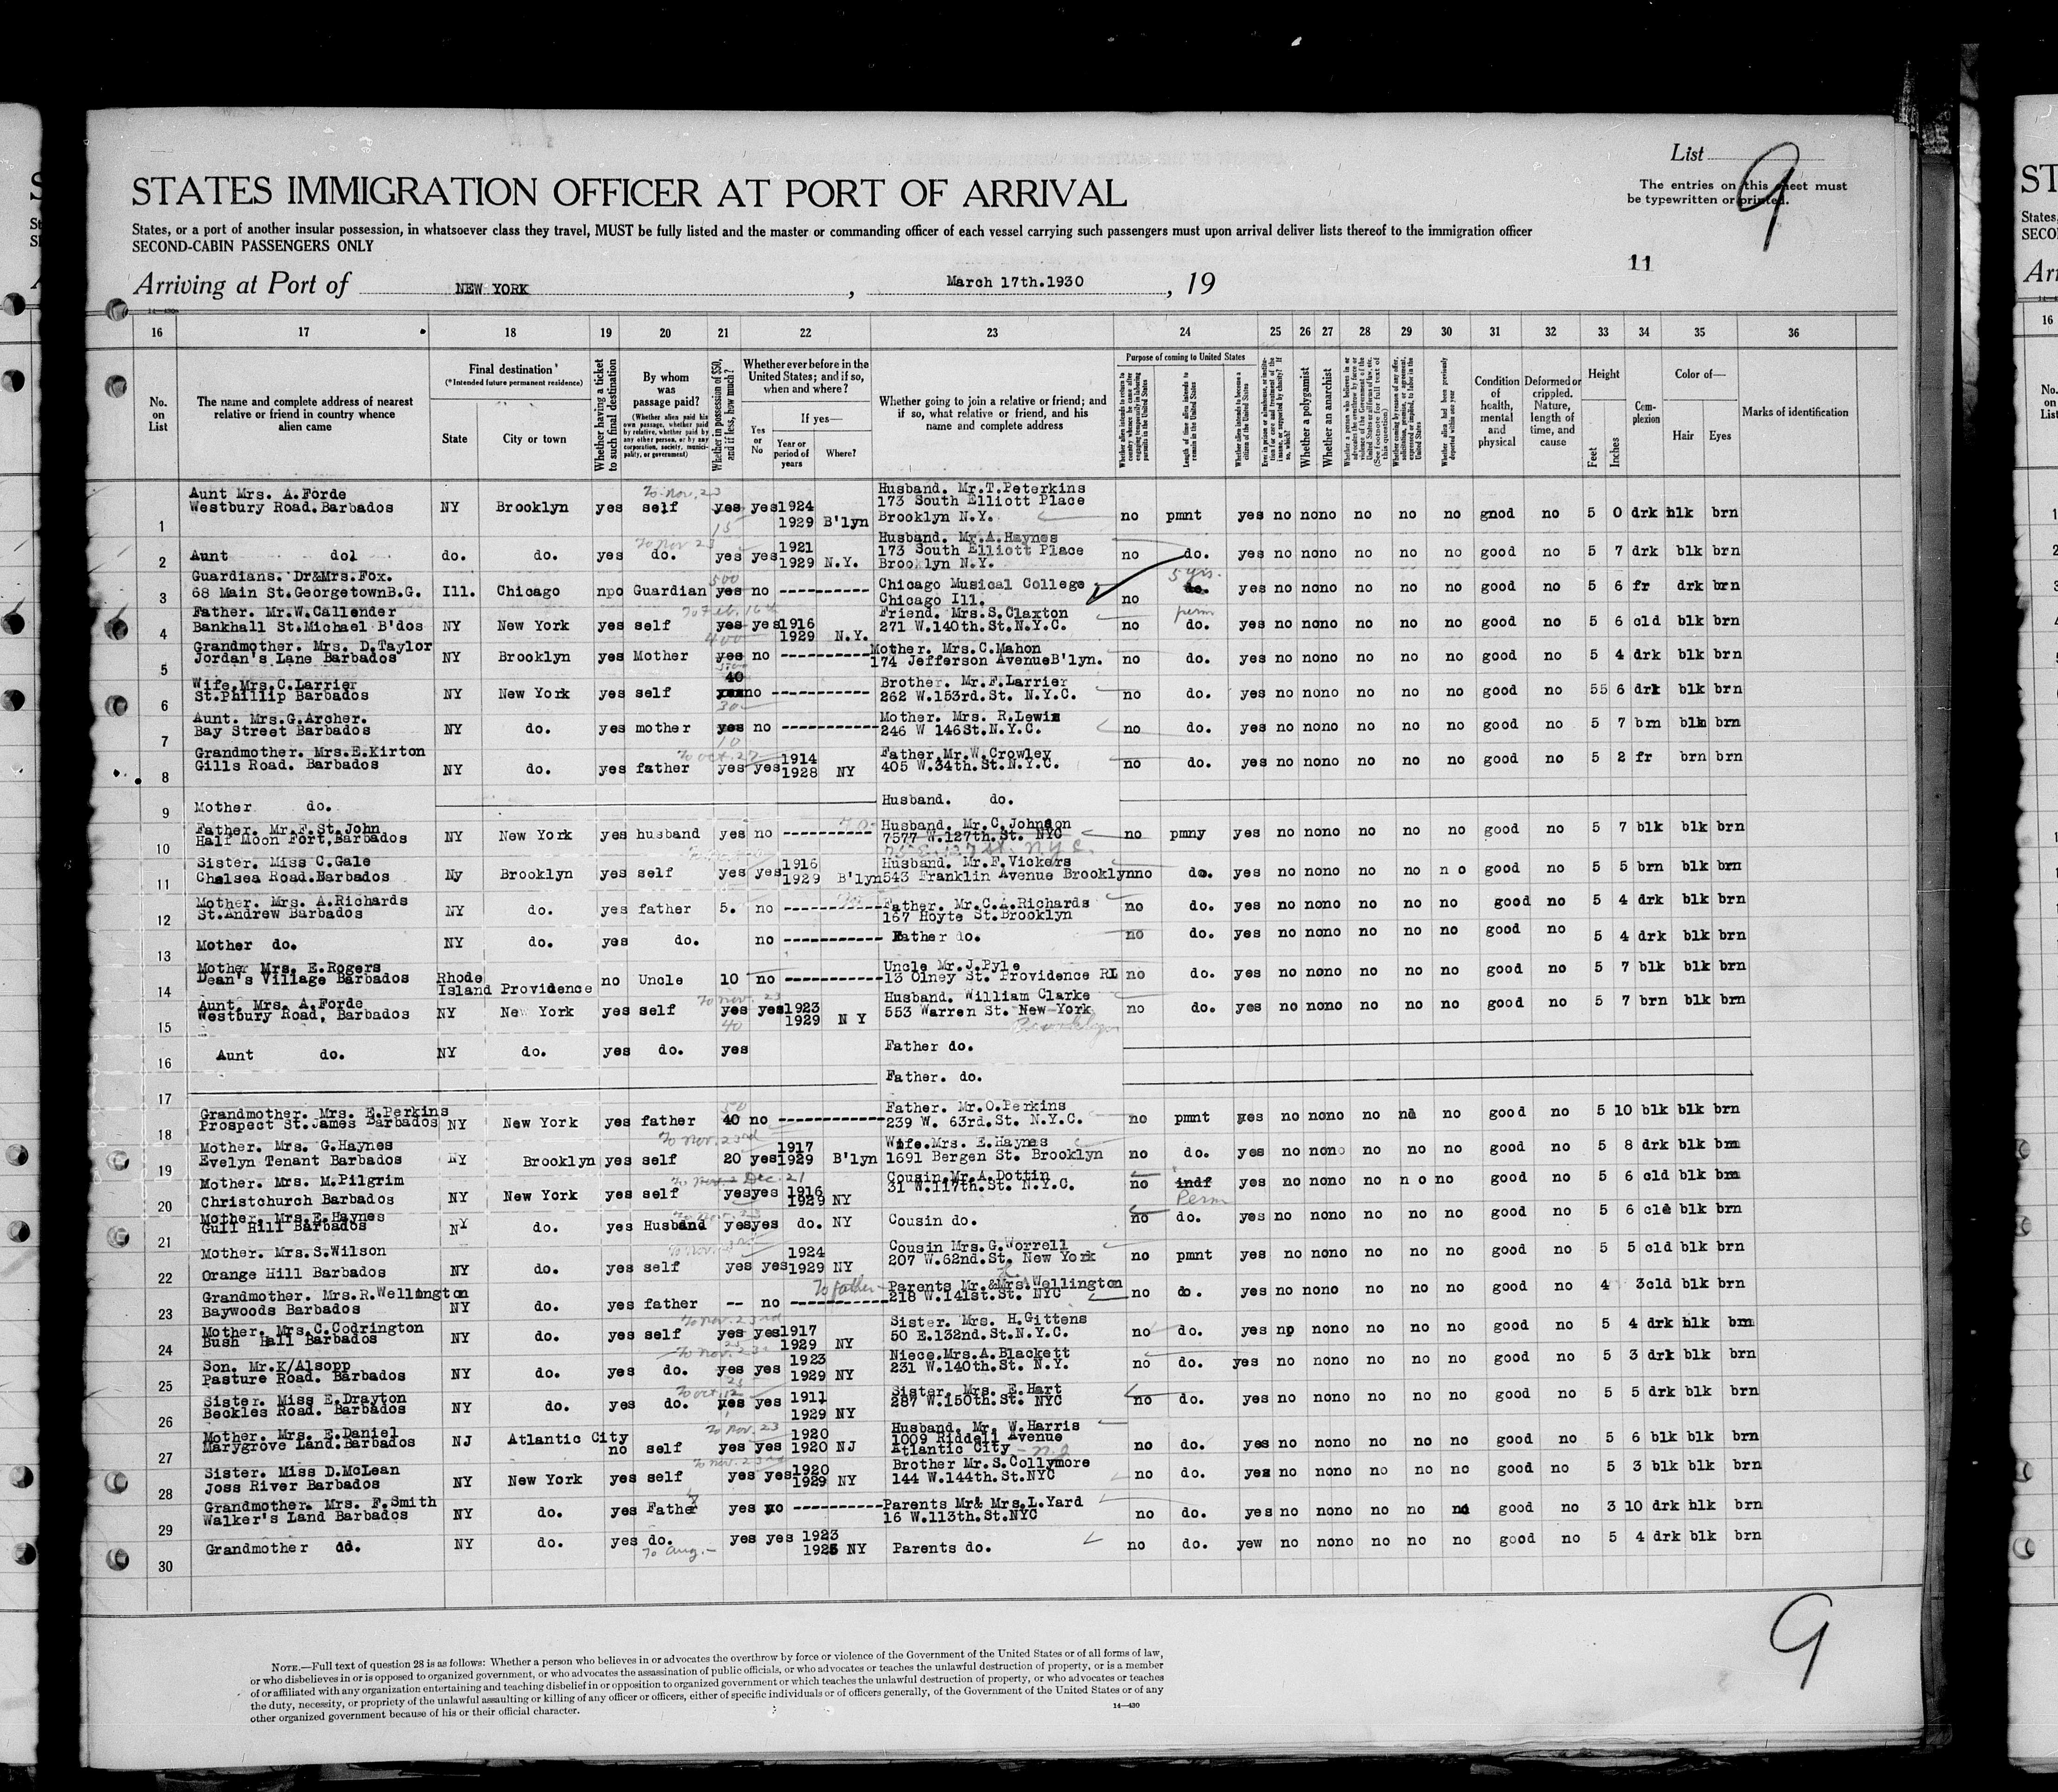 List 9
STATES IMMIGRATION OFFICER AT PORT OF ARRIVAL
The entries on this sheet must
be typewritten or printed.
States, or a port of another insular possession, in whatsoever class they travel, MUST be fully listed and the master or commanding officer of each vessel carrying such passengers must upon arrival deliver lists thereof to the immigration officer
SECOND-CABIN PASSENGERS ONLY
11
Arriving at Port of NEW YORK, March 17th.1930, 19
16 17 18 19 20 21 22 23 24 25 26 27 28 29 30 31 32 33 34 35 36
No. on List
The name and complete address of nearest relative or friend in country whence alien came
Final destination
(*Intended future permanent residence)
State City or town
Whether having a ticket to such final destination
By whom was passage paid?
(Whether alien paid his own passage, whether paid by relative, whether paid by any other person, or by any corporation, society, municipality, or government)
Whether in possession of $50, and if less, how much?
Whether ever before in the United States; and if so, when and where?
Yes or No
If yes—
Year or period of years Where?
Whether going to join a relative or friend; and if so, what relative or friend, and his name and complete address
Purpose of coming to United States
Whether alien intends to return to country whence he came after engaging temporarily in laboring pursuits in the United States
Length of time alien intends to remain in the United States
Whether alien intends to become a citizen of the United States
Whether a polygamist
Whether an anarchist
Whether alien had been previously deported within one year
Condition of health, mental and physical
Deformed or crippled. Nature, length of time, and cause
Height
Feet Inches
Complexion
Color of—
Hair Eyes
Marks of identification
1 Aunt Mrs. A.Forde Westbury Road.Barbados NY Brooklyn yes self To Nov. 23 yes 15 yes 1924 1929 B'lyn Husband. Mr.T.Peterkins 173 South Elliott Place Brooklyn N.Y. no pmnt yes no no no no no no gnod no 5 0 drk blk brn
2 Aunt do1 do. do. yes do. To Nov 23 yes yes 1921 1929 N.Y. Husband. Mr.A.Haynes 173 South Elliott Place Brooklyn N.Y. no do. yes no no no no no no good no 5 7 drk blk brn
3 Guardians. Dr&Mrs.Fox. 68 Main St.GeorgetownB.G. Ill. Chicago npo Guardian 500 yes no ---------- Chicago Musical College Chicago Ill. no do. 5 yrs. yes no no no no no no good no 5 6 fr drk brn
4 Father. Mr.W.Callender Bankhall St.Michael B'dos NY New York yes self To Feb. 16th yes 400 yes 1916 1929 N.Y. Friend. Mrs.S.Claxton 271 W.140th.St.N.Y.C. no perm do. yes no no no no no no good no 5 6 cld blk brn
5 Grandmother. Mrs. D.Taylor Jordan's Lane Barbados NY Brooklyn yes Mother yes no ---------- Mother. Mrs.C.Mahon 174 Jefferson AvenueB'lyn. no do. yes no no no no no no good no 5 4 drk blk brn
6 Wife.Mrs.C.Larrier St.Phillip Barbados NY New York yes self 40 30 no ---------- Brother. Mr.F.Larrier 262 W.153rd.St. N.Y.C. no do. yes no no no no no no good no 55 6 drk blk brn
7 Aunt. Mrs.G.Archer. Bay Street Barbados NY do. yes mother yes 10 no ---------- Mother. Mrs. R.Lewis 246 W 146St.N.Y.C. no do. yes no no no no no no good no 5 7 brn blk brn
8 Grandmother. Mrs.E.Kirton Gills Road. Barbados NY do. yes father To Oct. 27 yes yes 1914 1928 NY Father.Mr.W.Crowley 405 W.34th.St.N.Y.C. no do. yes no no no no no no good no 5 2 fr brn brn
9 Mother do. Husband. do.
10 Father. Mr.F.St.John Half Moon Fort,Barbados NY New York yes husband yes no ---------- Husband. Mr.C.Johnson 7577 W.127th.St. NYC no pmny yes no no no no no no good no 5 7 blk blk brn
11 Sister. Miss C.Gale Chelsea Road.Barbados Ny Brooklyn yes self yes yes 1916 1929 B'lyn Husband. Mr.F.Vickers 543 Franklin Avenue Brooklyn no do. yes no no no no no n o good no 5 5 brn blk brn
12 Mother. Mrs. A.Richards St.Andrew Barbados NY do. yes father 5. no ---------- Father. Mr.C.A.Richards 167 Hoyte St.Brooklyn no do. yes no no no no no no good no 5 4 drk blk brn
13 Mother do. NY do. yes do. no ---------- Father do. no do. yes no no no no no no good no 5 4 drk blk brn
14 Mother Mrs. E.Rogers Dean's Village Barbados Rhode Island Providence no Uncle 10 no ---------- Uncle Mr.J.Pyle 13 Olney St. Providence RI no do. yes no no no no no no good no 5 7 blk blk brn
15 Aunt. Mrs. A.Forde Westbury Road, Barbados NY New York yes self To Nov. 23 yes 40 yes 1923 1929 N Y Husband. William Clarke 553 Warren St. New York Brooklyn no do. yes no no no no no no good no 5 7 brn blk brn
16 Aunt do. NY do. yes do. yes Father do.
17 Father. do.
18 Grandmother. Mrs. E.Perkins Prospect St.James Barbados NY New York yes father 50 40 no ---------- Father. Mr.O.Perkins 239 W. 63rd.St. N.Y.C. no pmnt yes no no no no no no good no 5 10 blk blk brn
19 Mother. Mrs. G.Haynes Evelyn Tenant Barbados NY Brooklyn yes self To Nov. 23rd 20 yes 1917 1929 B'lyn Wife.Mrs. E.Haynes 1691 Bergen St. Brooklyn no do. yes no no no no no no good no 5 8 drk blk brn
20 Mother. Mrs. M.Pilgrim Christchurch Barbados NY New York yes self Dec. 21 yes yes 1916 1929 NY Cousin.Mr.A.Dottin 31 W.117th.St. N.Y.C. no indf Perm yes no no no no n o no good no 5 6 cld blk brn
21 Mother. Mrs.E.Haynes Gull Hill Barbados NY do. yes Husband yes yes do. NY Cousin do. no do. yes no no no no no no good no 5 6 cld blk brn
22 Mother. Mrs.S.Wilson Orange Hill Barbados NY do. yes self yes yes 1924 1929 NY Cousin Mrs.G.Worrell 207 W.62nd.St. New York no pmnt yes no no no no no no good no 5 5 cld blk brn
23 Grandmother. Mrs.R.Wellington Baywoods Barbados NY do. yes father -- no ---------- To father Parents Mr.&Mrs.Wellington 218 W.141st.St. NYC no do. yes no no no no no no good no 4 3 cld blk brn
24 Mother. Mrs.C.Codrington Bush Hall Barbados NY do. yes self To Nov. 23rd yes yes 1917 1929 NY Sister. Mrs. H.Gittens 50 E.132nd.St.N.Y.C. no do. yes no no no no no no good no 5 4 drk blk brn
25 Son. Mr.K/Alsopp Pasture Road. Barbados NY do. yes do. To Nov. 23 yes yes 1923 1929 NY Niece.Mrs.A.Blackett 231 W.140th.St. N.Y. no do. yes no no no no no no good no 5 3 drk blk brn
26 Sister. Miss E.Drayton Beckles Road. Barbados NY do. yes do. To Oct. 12 yes yes 1911 1929 NY Sister. Mrs. E.Hart 287 W.150th.St. NYC no do. yes no no no no no no good no 5 5 drk blk brn
27 Mother. Mrs. E.Daniel Marygrove Land.Barbados NJ Atlantic City no self To Nov. 23 yes yes 1920 1920 NJ Husband. Mr. W.Harris 1009 Riddell Avenue Atlantic City - N.J no do. yes no no no no no no good no 5 6 blk blk brn
28 Sister. Miss D.McLean Joss River Barbados NY New York yes self To Nov. 23rd yes yes 1920 1929 NY Brother Mr.S.Collymore 144 W.144th.St.NYC no do. yes no no no no no no good no 5 3 blk blk brn
29 Grandmother. Mrs. F.Smith Walker's Land Barbados NY do. yes Father yes no ---------- Parents Mr& Mrs.L.Yard 16 W.113th.St.NYC no do. yes no no no no no no good no 3 10 drk blk brn
30 Grandmother dd. NY do. yes do. To Aug. yes yes 1923 1925 NY Parents do. no do. yew no no no no no no good no 5 4 drk blk brn
9
NOTE.—Full text of question 28 is as follows: Whether a person who believes in or advocates the overthrow by force or violence of the Government of the United States or of all forms of law,
or who disbelieves in or is opposed to organized government, or who advocates the assassination of public officials, or who advocates or teaches the unlawful destruction of property, or is a member
of or affiliated with any organization entertaining and teaching disbelief in or opposition to organized government or which teaches the unlawful destruction of property, or who advocates or teaches
the duty, necessity, or propriety of the unlawful assaulting or killing of any officer or officers, either of specific individuals or of officers generally, of the Government of the United States or of any
other organized government because of his or their official character.
14—430